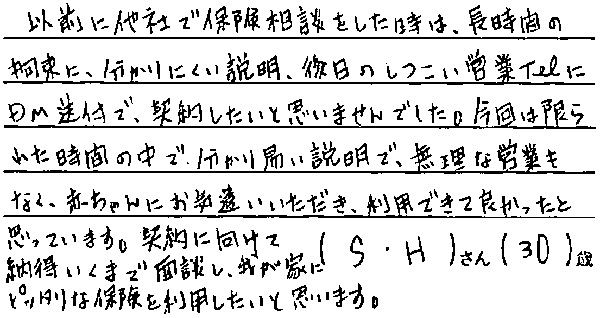 以前に他社で保険相談をした時は、長時間の
拘束に、分かりにくい説明、後日のしつこい営業Telに
DM送付で、契約したいと思いませんでした。今回は限ら
れた時間の中で分かり易い説明で、無理な営業も
なく、赤ちゃんにお気遣いいただき、利用できて良かったと
思っています。契約に向けて
納得いくまで面談し、我が家に
ピッタリな保険を利用したいと思います。
(S・H)さん(30)歳